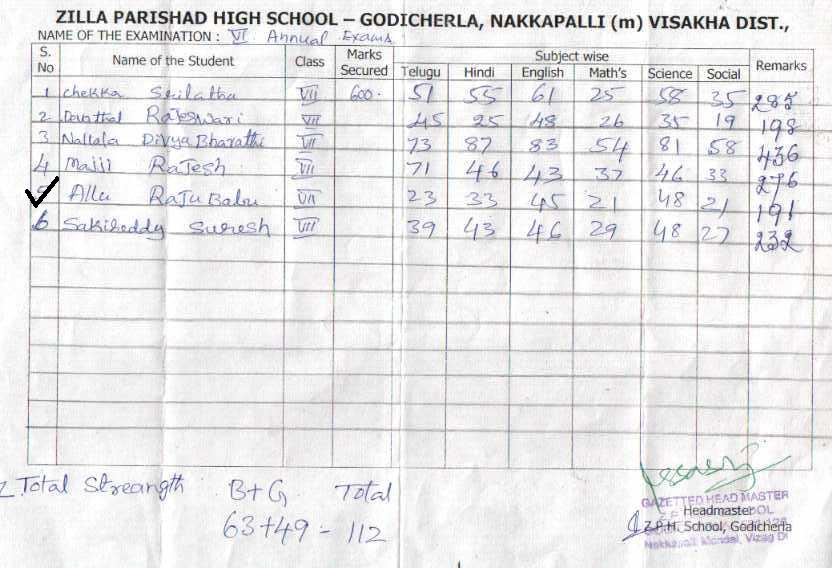 ZILLA PARISHAD HIGH SCHOOL – GODICHERLA, NAKKAPALLI (m) VISAKHA DIST.,
NAME OF THE EXAMINATION : VI Annual Exams
S. No Name of the Student Class Marks Secured Subject wise Remarks
Telugu Hindi English Math's Science Social
1 chekka Srilatha VII 600. 51 55 61 25 58 35 285
2 Rajeswari VII 45 25 48 26 35 19 198
3 Nallala Divya Bharathi VII 73 87 83 54 81 58 436
4 Majji Rajesh VII 71 46 43 37 46 33 276
5 Allu Raju Babu VII 23 33 45 21 48 21 191
6 Suresh VII 39 43 46 29 48 27 232
Total Streangth B+G Total
63+49 = 112
GAZETTED HEAD MASTER
Headmaster
Z.P.H. School, Godicherla
Mandal, Vizag